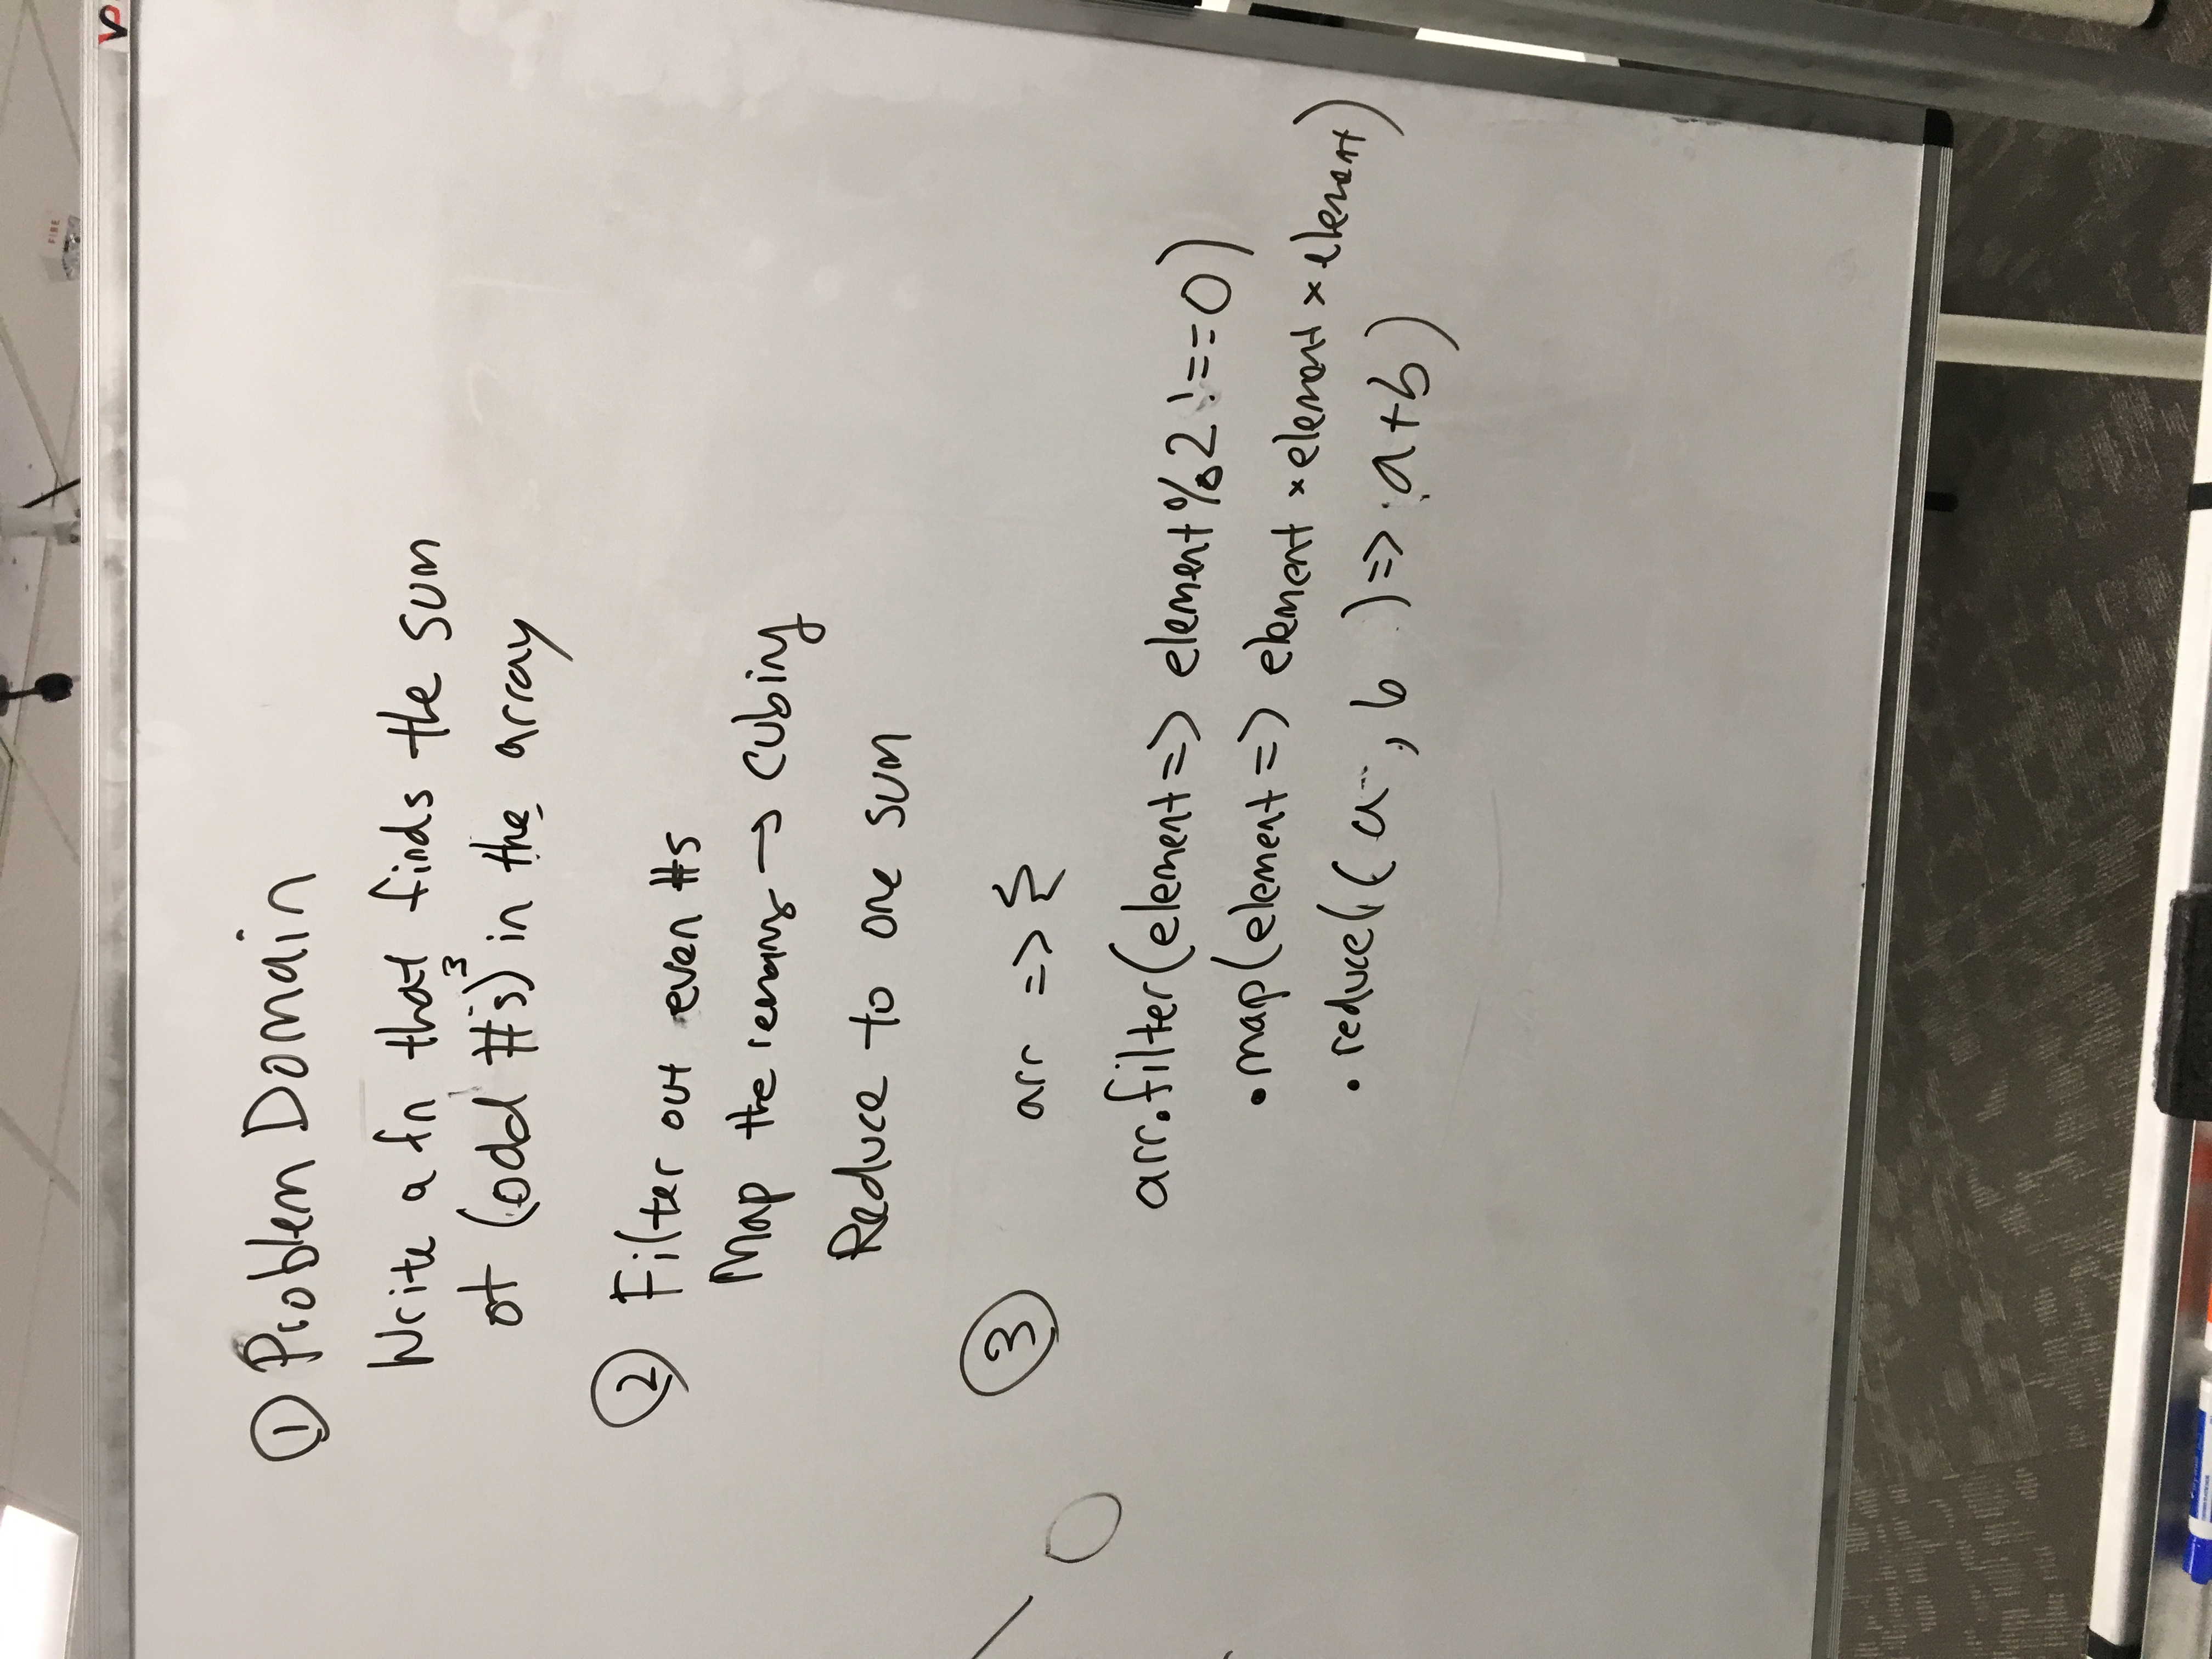 FIRE
VP
① Problem Domain
Write a fn that finds the sum
of (odd #s)³ in the array
② Filter out even #s
Map the → cubing
Reduce to one sum
③ arr => {
arr.filter(element => element%2 !==0)
.map(element => element × element × element)
.reduce((a, b) => a+b)